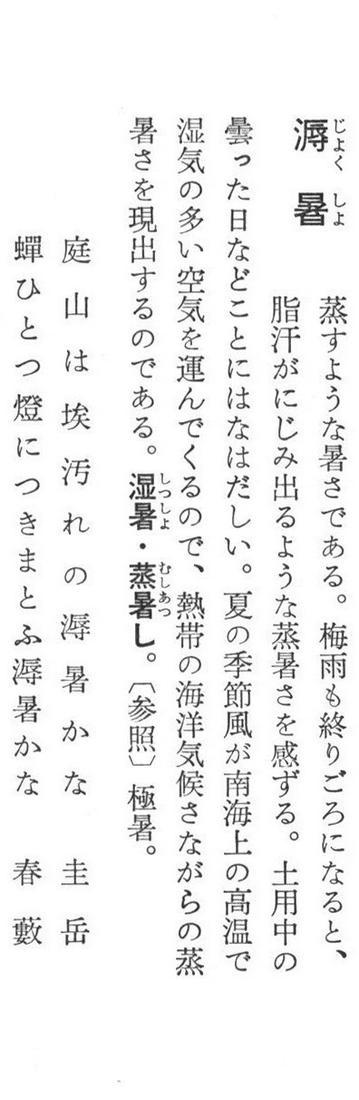 溽暑
じょく しょ
蒸すような暑さである。梅雨も終りごろになると、
脂汗がにじみ出るような蒸暑さを感ずる。土用中の
曇った日などことにはなはだしい。夏の季節風が南海上の高温で
湿気の多い空気を運んでくるので、熱帯の海洋気候さながらの蒸
暑さを現出するのである。湿暑・蒸暑し。〔参照〕極暑。
しつしよ むしあつ
庭山は埃汚れの溽暑かな 圭岳
蟬ひとつ燈につきまとふ溽暑かな 春藪